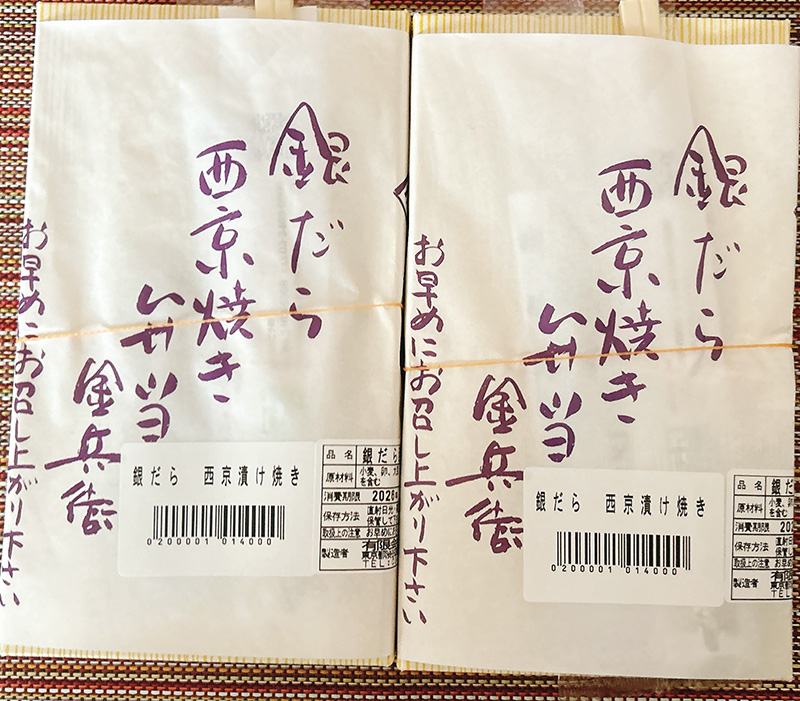 銀だら
西京焼き
弁当
金兵衛
お早めにお召し上がり下さい
銀だら 西京漬け焼き
0200001 014000
品名 銀だら
原材料 小麦、卵、大
を含む
消費期限 2026
保存方法 直射日光
保管して
取扱上の注意 お早めに
製造者 有限会
東京都
TEL:
銀だら
西京焼き
弁当
金兵衛
お早めにお召し上がり下さい
銀だら 西京漬け焼き
0200001 014000
品名 銀だ
原材料 小麦、
を含む
消費期限 20
保存方法 直射日
保管し
取扱上の注意 お早め
製造者 有限
東京都
TEL